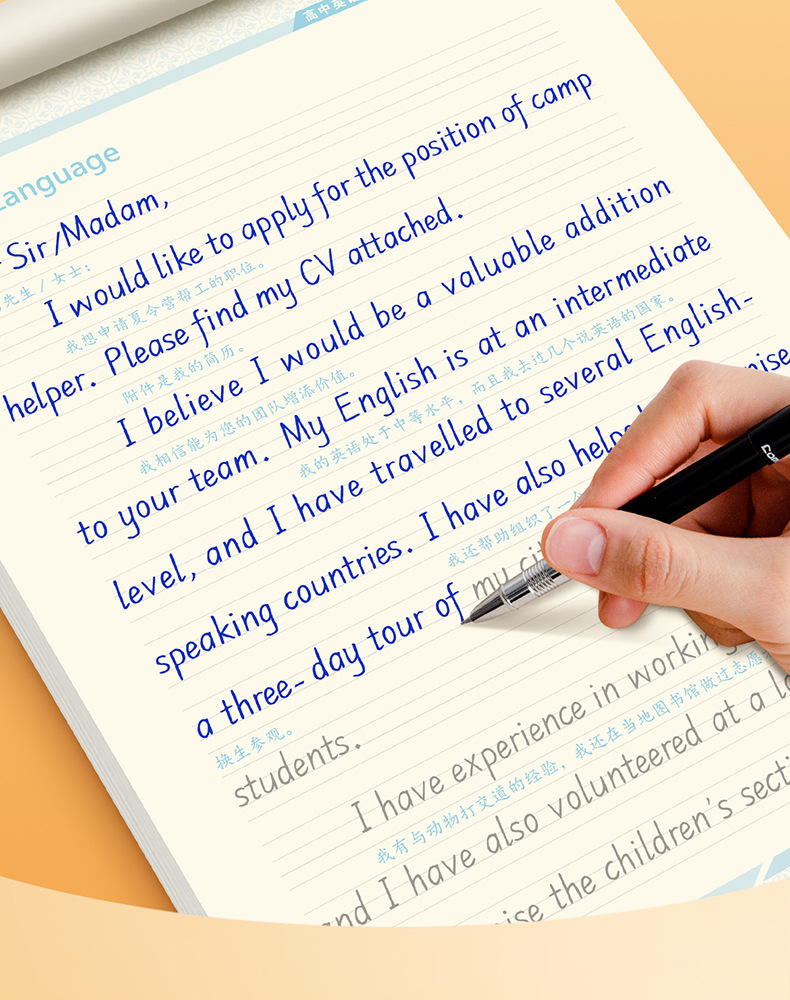 高中英语
Language
Sir/Madam,
先生/女士:
I would like to apply for the position of camp
我想申请夏令营帮工的职位。
helper. Please find my CV attached.
附件是我的简历。
I believe I would be a valuable addition
我相信能为您的团队增添价值。
to your team. My English is at an intermediate
我的英语处于中等水平，而且我去过几个说英语的国家。
level, and I have travelled to several English-
speaking countries. I have also helped
我还帮助组织了一个
a three-day tour of my
换生参观。
students.
I have experience in working
我有与动物打交道的经验，我还在当地图书馆做过志愿
and I have also volunteered at a
the children's